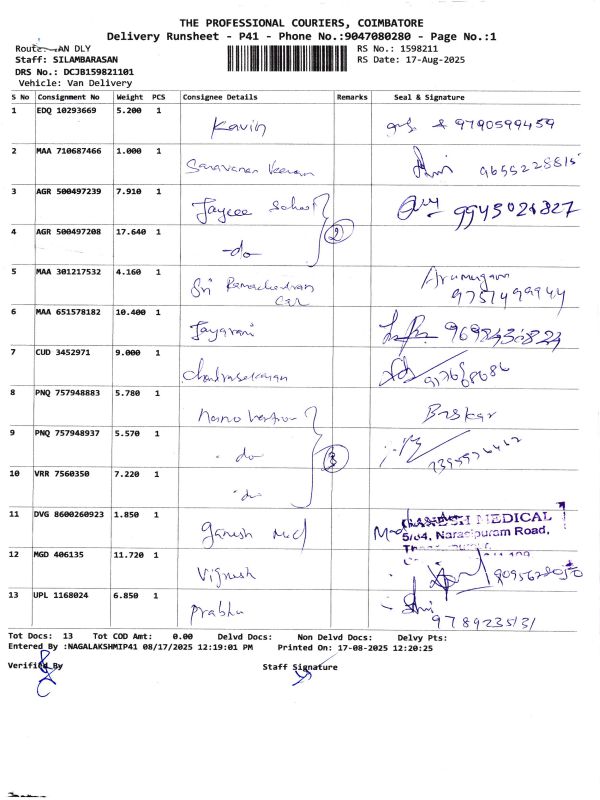 THE PROFESSIONAL COURIERS, COIMBATORE
Delivery Runsheet - P41 - Phone No.:9047080280 - Page No.:1
Route: AN DLY
RS No.: 1598211
Staff: SILAMBARASAN
RS Date: 17-Aug-2025
DRS No.: DCJB159821101
Vehicle: Van Delivery
S No Consignment No Weight PCS Consignee Details Remarks Seal & Signature
1 EDQ 10293669 5.200 1 Kavin 9790599459
2 MAA 710687466 1.000 1 Saravanan Veeram
3 AGR 500497239 7.910 1 Jaycee School 2 9943021827
4 AGR 500497208 17.640 1 -do-
5 MAA 301217532 4.160 1 Sri Ramachandran Arumugam
9751499944
6 MAA 651578182 10.400 1 Jayarani
7 CUD 3452971 9.000 1 Chandrasekaran
8 PNQ 757948883 5.780 1 Baskar
9 PNQ 757948937 5.570 1 - do 3
10 VRR 7560350 7.220 1 - do
11 DVG 8600260923 1.850 1 Ganesh Med GANESH MEDICAL
5/64, Narasipuram Road,
12 MGD 406135 11.720 1 Vignesh
13 UPL 1168024 6.850 1 Prabhu
9789235131
Tot Docs: 13 Tot COD Amt: 0.00 Delvd Docs: Non Delvd Docs: Delvy Pts:
Entered By :NAGALAKSHMIP41 08/17/2025 12:19:01 PM Printed On: 17-08-2025 12:20:25
Verified By Staff Signature